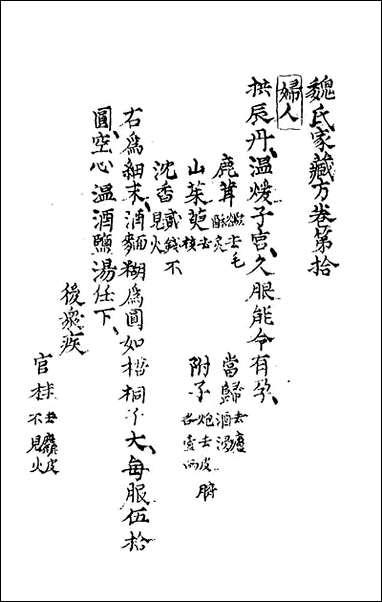 魏氏家藏方卷第拾
婦人
拱辰丹、溫煖子宮、久服能令有孕、
鹿茸 去毛酥炙
當歸 去蘆酒浸
山茱萸 去核
附子 炮去皮臍各壹兩
沈香 貳錢不見火
右爲細末、酒麵糊爲圓如梧桐子大、每服伍拾
圓、空心溫酒鹽湯任下、
後衆疾
官桂 去麤皮不見火